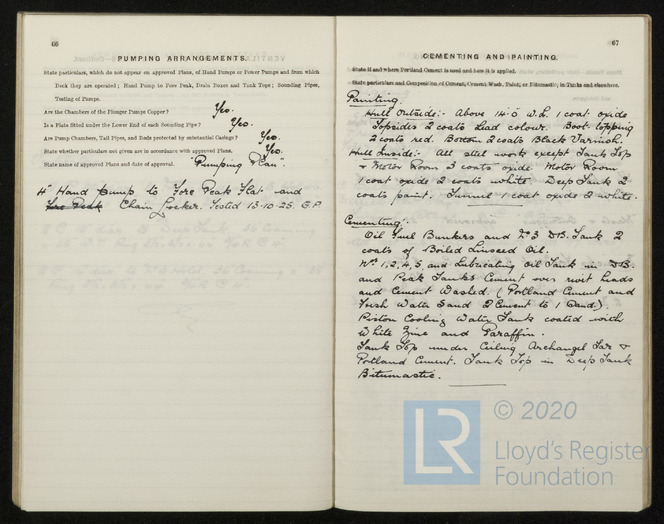 66
PUMPING ARRANGEMENTS.
State particulars, which do not appear on approved Plans, of Hand Pumps or Power Pumps and from which
Deck they are operated; Hand Pump to Fore Peak, Drain Boxes and Tank Tops; Sounding Pipes,
Testing of Pumps.
Are the Chambers of the Plunger Pumps Copper? Yes.
Is a Plate fitted under the Lower End of each Sounding Pipe? Yes.
Are Pump Chambers, Tail Pipes, and Rods protected by substantial Casings? Yes
State whether particulars not given are in accordance with approved Plans. Yes.
State name of approved Plans and date of approval. "Pumping Plan".
4" Hand Pump to Fore Peak Flat and
Fore Peak Chain Locker. Tested 13.10.25. G.P.
67
CEMENTING AND PAINTING.
State if and where Portland Cement is used and how it is applied.
State particulars and Composition of Cement, Cement Wash, Paint, or Bitumastic, in Tanks and elsewhere.
Painting.
Hull Outside:- Above 14.0 W.L. 1 coat oxide
Topsides 2 coats Lead colour. Boot topping
2 coats red. Bottom 2 coats Black Varnish.
Hull Inside:- All steel work except Tank Top
+ Motor Room 3 coats oxide. Motor Room
1 coat oxide 2 coats white. Deep Tank 2
coats paint. Tunnel 1 coat oxide 2 white.
Cementing.
Oil Fuel Bunkers and No 3 D.B. Tank 2
coats of Boiled Linseed Oil.
Nos 1, 2, 4, 5, and Lubricating Oil Tank in D.B.
and Peak Tanks Cement over rivet heads
and Cement Washed. (Portland Cement and
Fresh Water Sand 2 Cement to 1 Sand.)
Piston Cooling Water Tank coated with
White Zinc and Paraffin.
Tank Top under Ceiling Archangel Tar &
Portland Cement. Tank Top in Deep Tank
Bitumastic.
© 2020
LR
Lloyd's Register
Foundation